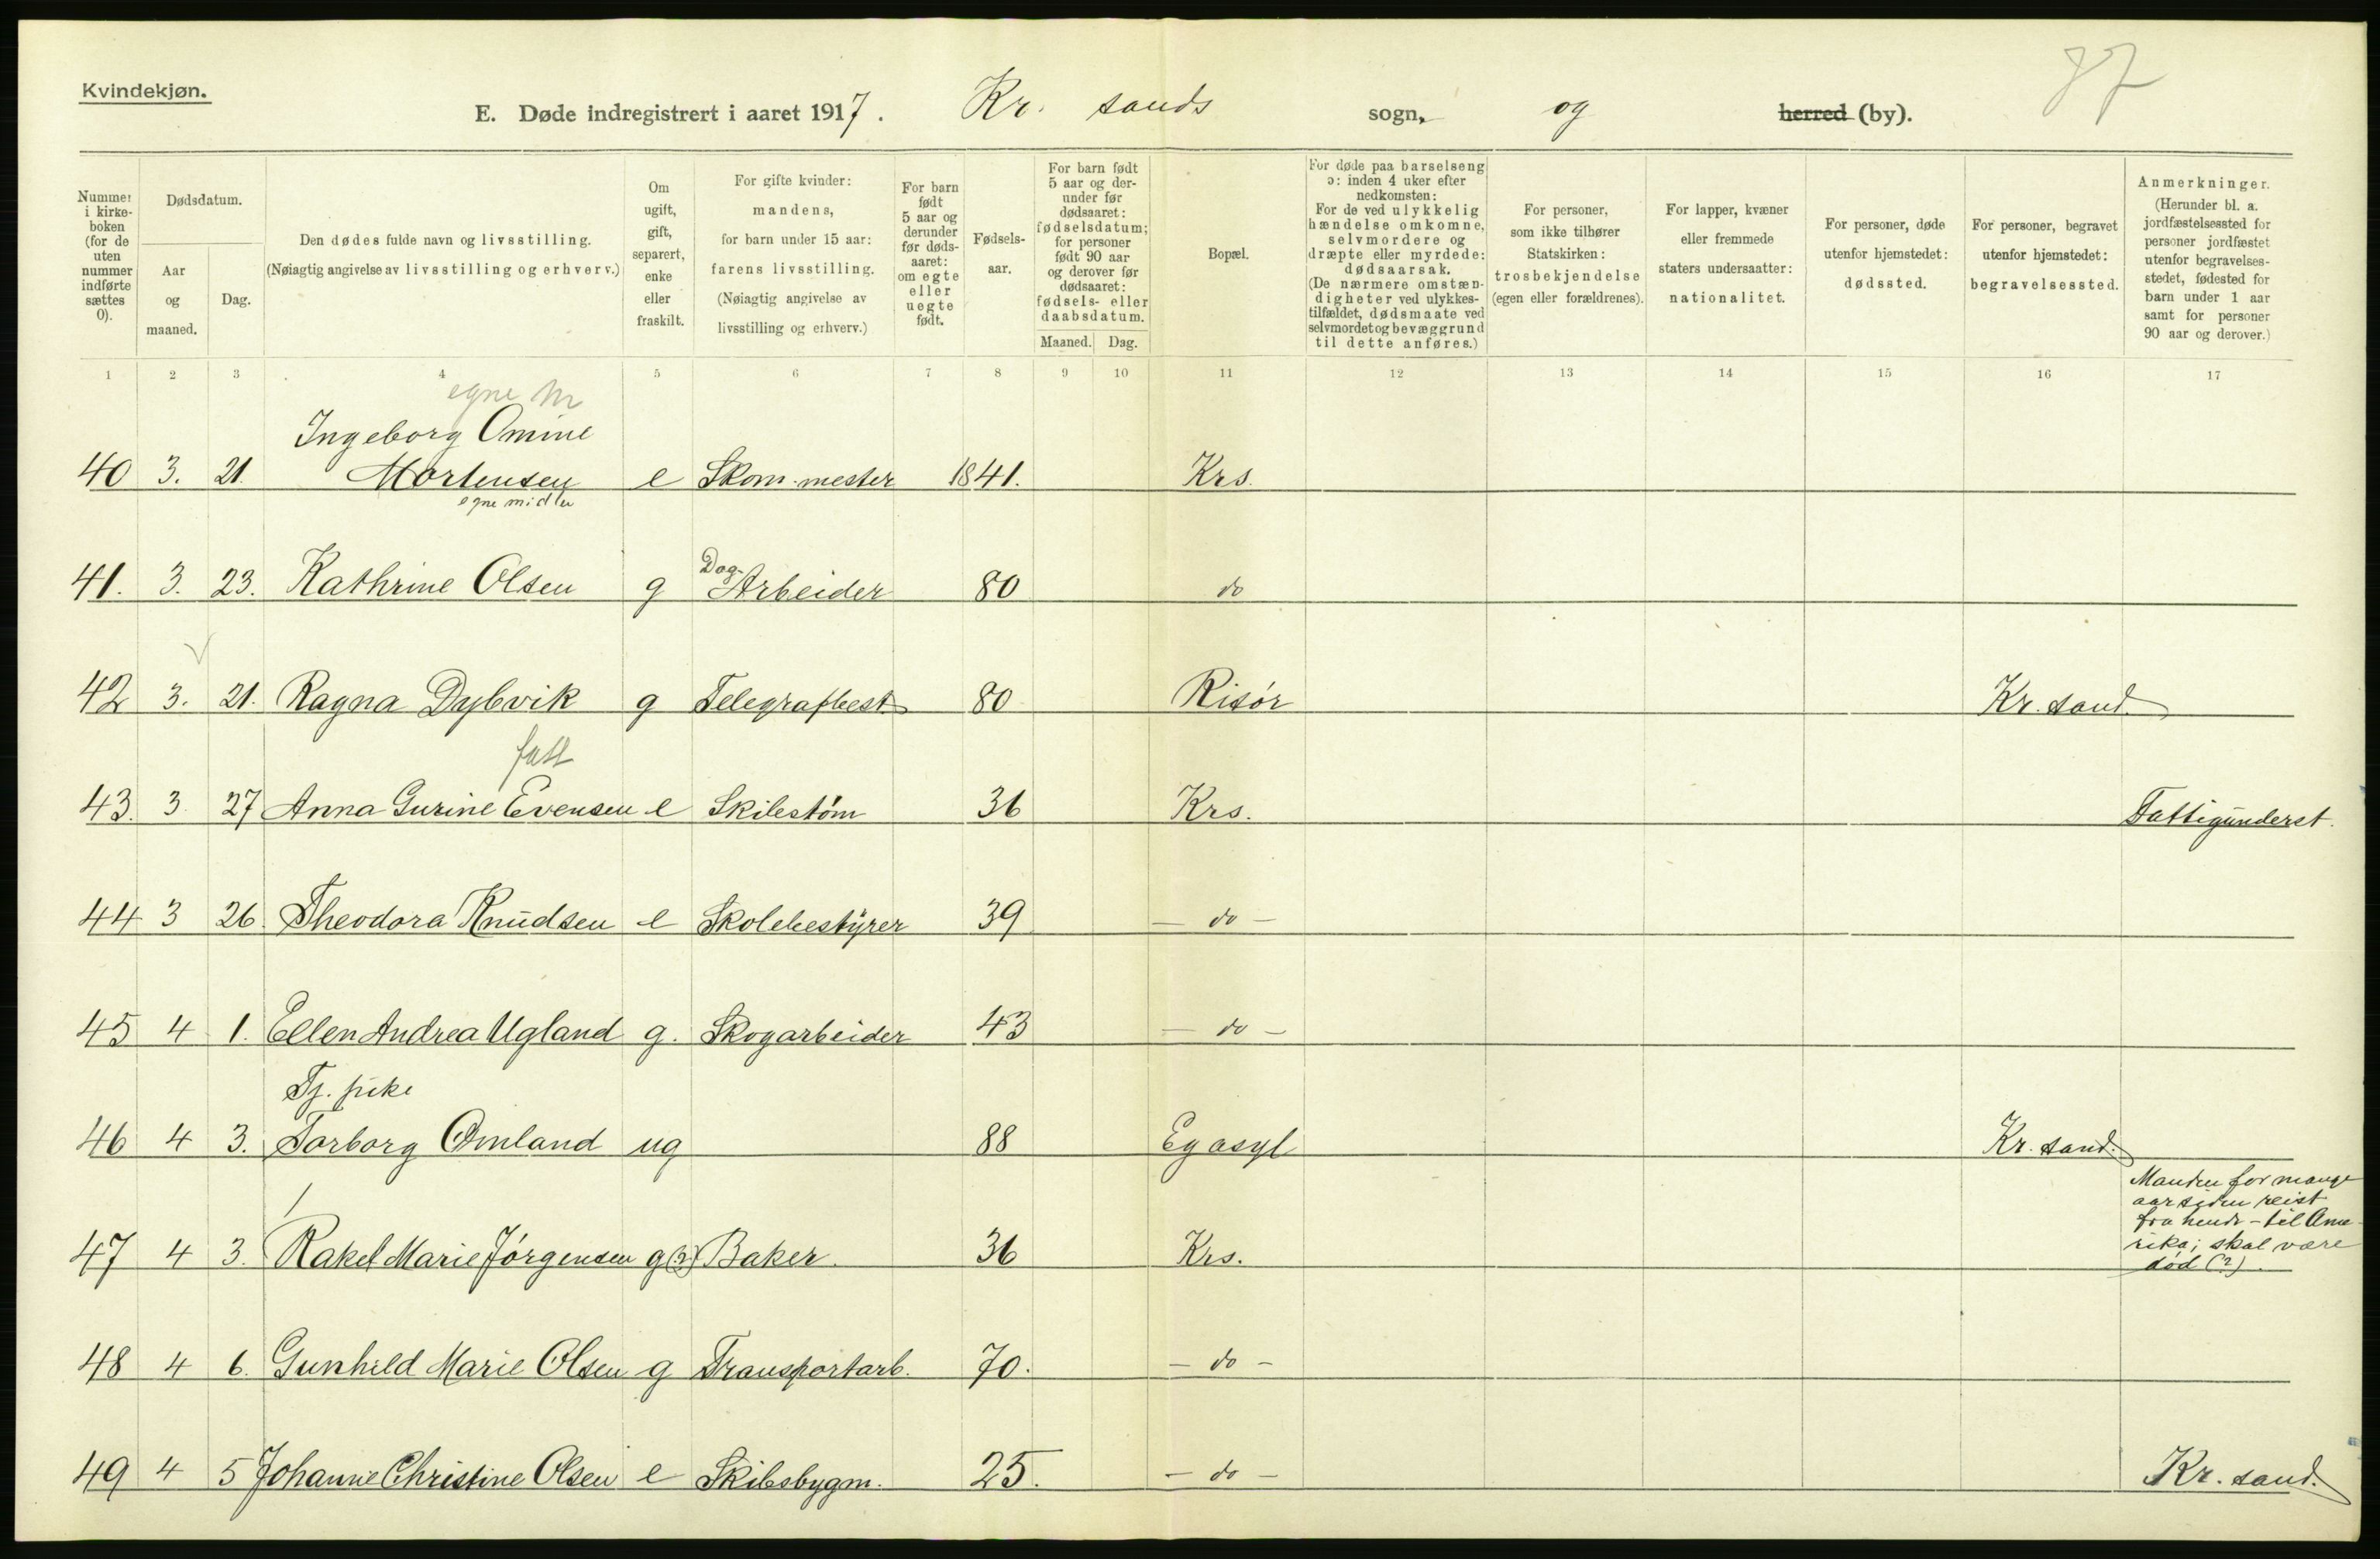 Kvindekjøn.
87
E. Døde indregistrert i aaret 1917. Kr. sands sogn, og herred (by).
Nummer i kirkeboken (for de uten nummer indførte sættes 0).
Dødsdatum.
Aar og maaned.
Dag.
Den dødes fulde navn og livsstilling.
(Nøiagtig angivelse av livsstilling og erhverv.)
Om ugift, gift, separert, enke eller fraskilt.
For gifte kvinder: mandens, for barn under 15 aar: farens livsstilling. (Nøiagtig angivelse av livsstilling og erhverv.)
For barn født 5 aar og derunder før dødsaaret: om egte eller uegte født.
Fødselsaar.
For barn født 5 aar og derunder før dødsaaret: fødselsdatum; for personer født 90 aar og derover før dødsaaret: fødsels- eller daabsdatum.
Maaned. Dag.
Bopæl.
For døde paa barselseng ɔ: inden 4 uker efter nedkomsten: For de ved ulykkelig hændelse omkomne, selvmordere og dræpte eller myrdede: dødsaarsak. (De nærmere omstændigheter ved ulykkestilfældet, dødsmaate ved selvmordet og bevæggrund til dette anføres.)
For personer, som ikke tilhører Statskirken: trosbekjendelse (egen eller forældrenes).
For lapper, kvæner eller fremmede staters undersaatter: nationalitet.
For personer, døde utenfor hjemstedet: dødssted.
For personer, begravet utenfor hjemstedet: begravelsessted.
Anmerkninger. (Herunder bl. a. jordfæstelsessted for personer jordfæstet utenfor begravelsesstedet, fødested for barn under 1 aar samt for personer 90 aar og derover.)
1 2 3 4 5 6 7 8 9 10 11 12 13 14 15 16 17
egne m
Ingeborg Omine
40 3. 21. Mortensen e Skom.mester 1841. Krs.
egne midler
Dag-
41. 3. 23. Kathrine Olsen g Arbeider 80 do
42 3. 21. Ragna Dybvik g Telegrafbest. 80 Risör Kr. sand.
fatt
43. 3. 27 Anna Gurine Evensen e Skibstøm 36 Krs. Fattigunderst.
44 3 26. Theodora Knudsen e Skolebestyrer 39 - do -
45 4 1. Ellen Andrea Ugland g. Skogarbeider 43 - do -
Tj. pike
46 4 3. Torborg Omland ug 88 Eg asyl Kr. sand.
Manden for mange
aar siden reist
fra hende - til Ame-
rika; skal være
47 4 3. Rakel Marie Jörgensen g(?) Baker. 36 Krs. död (?).
48 4 6. Gunhild Marie Olsen g Transportarb. 70. - do -
49 4 5 Johanne Christine Olsen e Skibsbygm. 25. - do - Kr. sand.